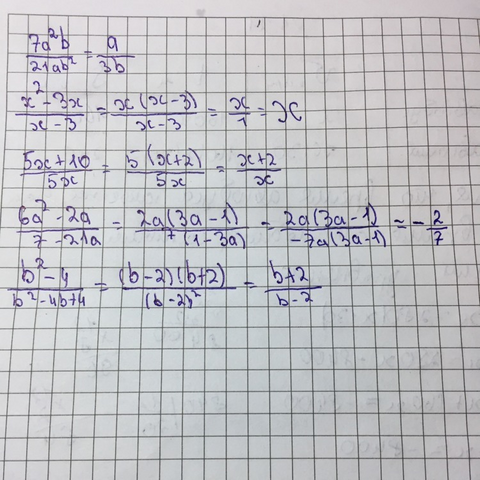 7a²b/21ab² = a/3b
(x²-3x)/(x-3) = x(x-3)/(x-3) = x/1 = x
(5x+10)/5x = 5(x+2)/5x = (x+2)/x
(6a²-2a)/(7-21a) = 2a(3a-1)/7(1-3a) = 2a(3a-1)/-7a(3a-1) = -2/7
(b²-4)/(b²-4b+4) = (b-2)(b+2)/(b-2)² = (b+2)/(b-2)